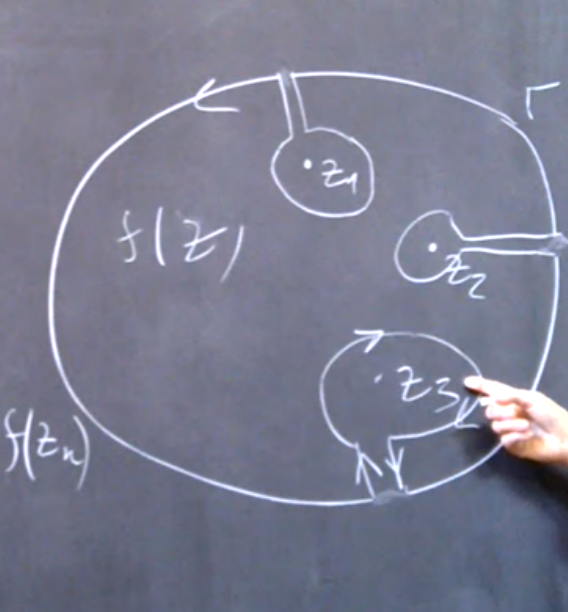 Γ
z₁
f(z)
z₂
z₃
f(zₙ)